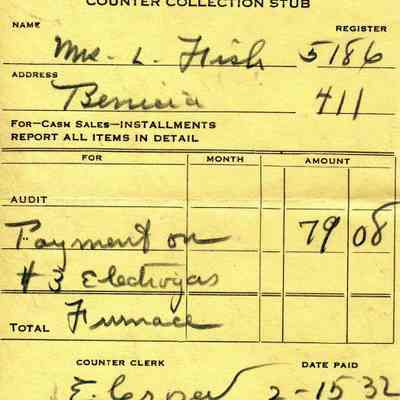 COUNTER COLLECTION STUB
NAME REGISTER
Mrs. L. Fish 5186
ADDRESS
Benicia 411
FOR—CASH SALES—INSTALLMENTS
REPORT ALL ITEMS IN DETAIL
FOR MONTH AMOUNT
AUDIT
Payment on 79 08
#3 Electrogas
TOTAL Furnace
COUNTER CLERK DATE PAID
E. 2-15 32